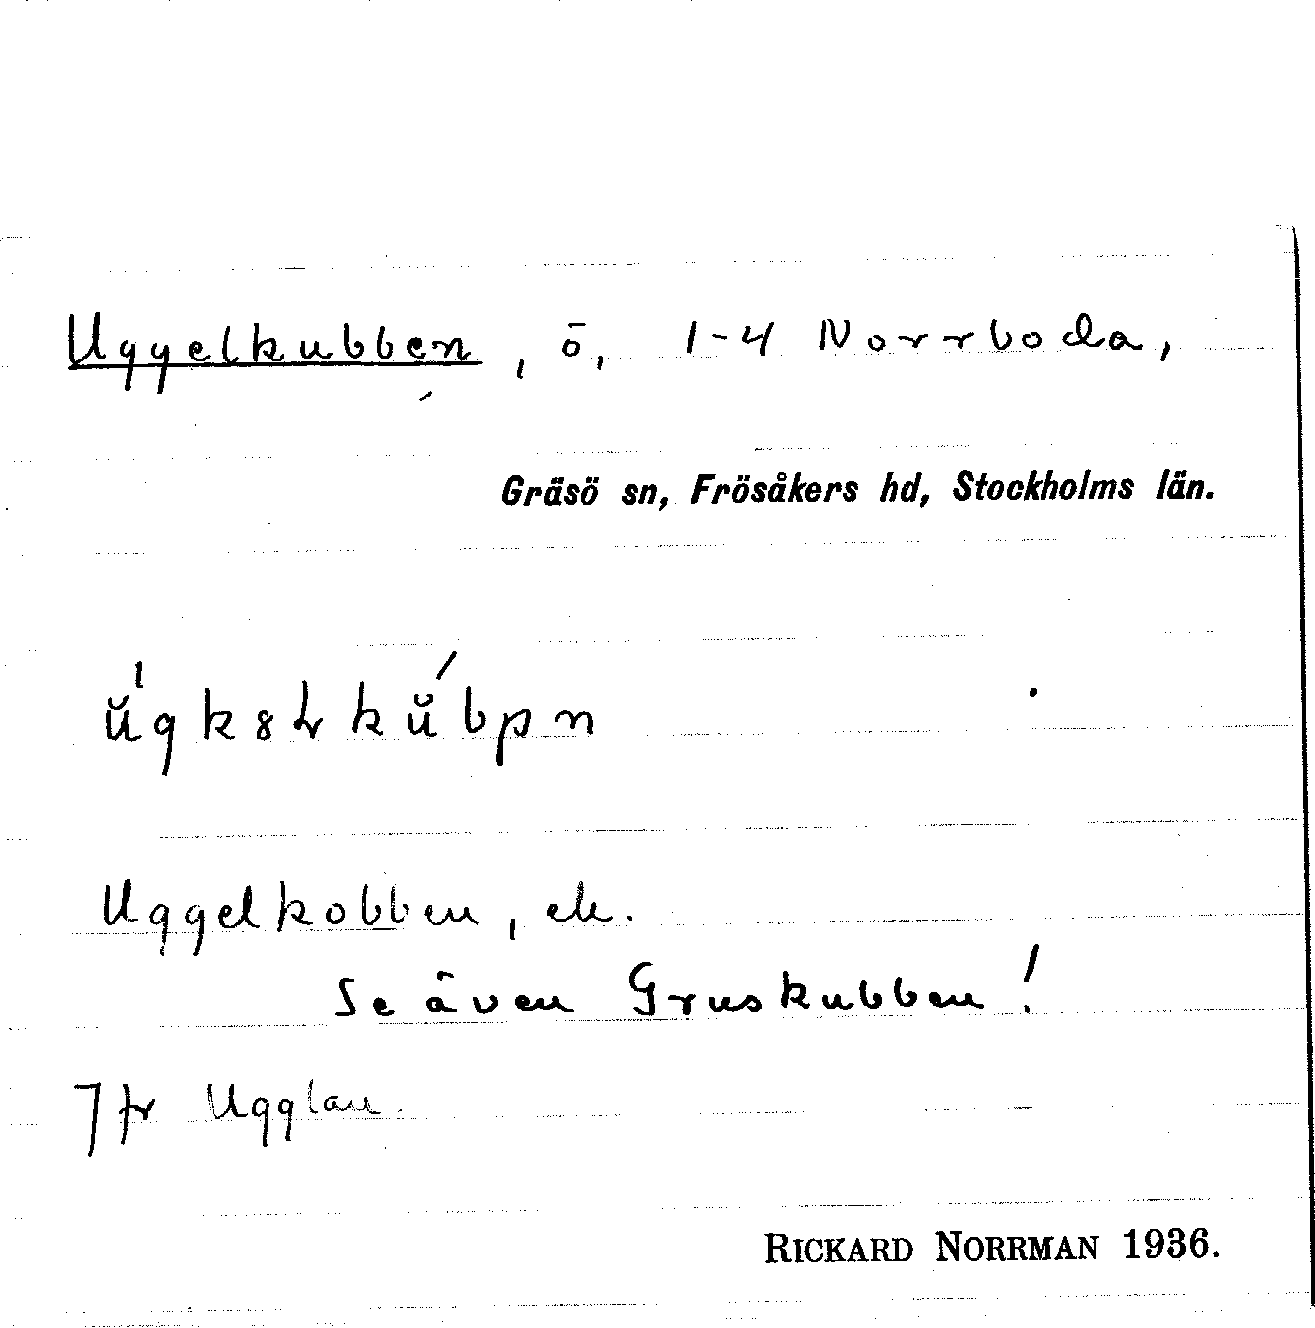 Uggelkubben, ö, 1-4 Norrboda,
Gräsö sn, Frösåkers hd, Stockholms län.
Uggelkobben, ek.
Se även Gruskubben!
Jfr Ugglan.
RICKARD NORRMAN 1936.